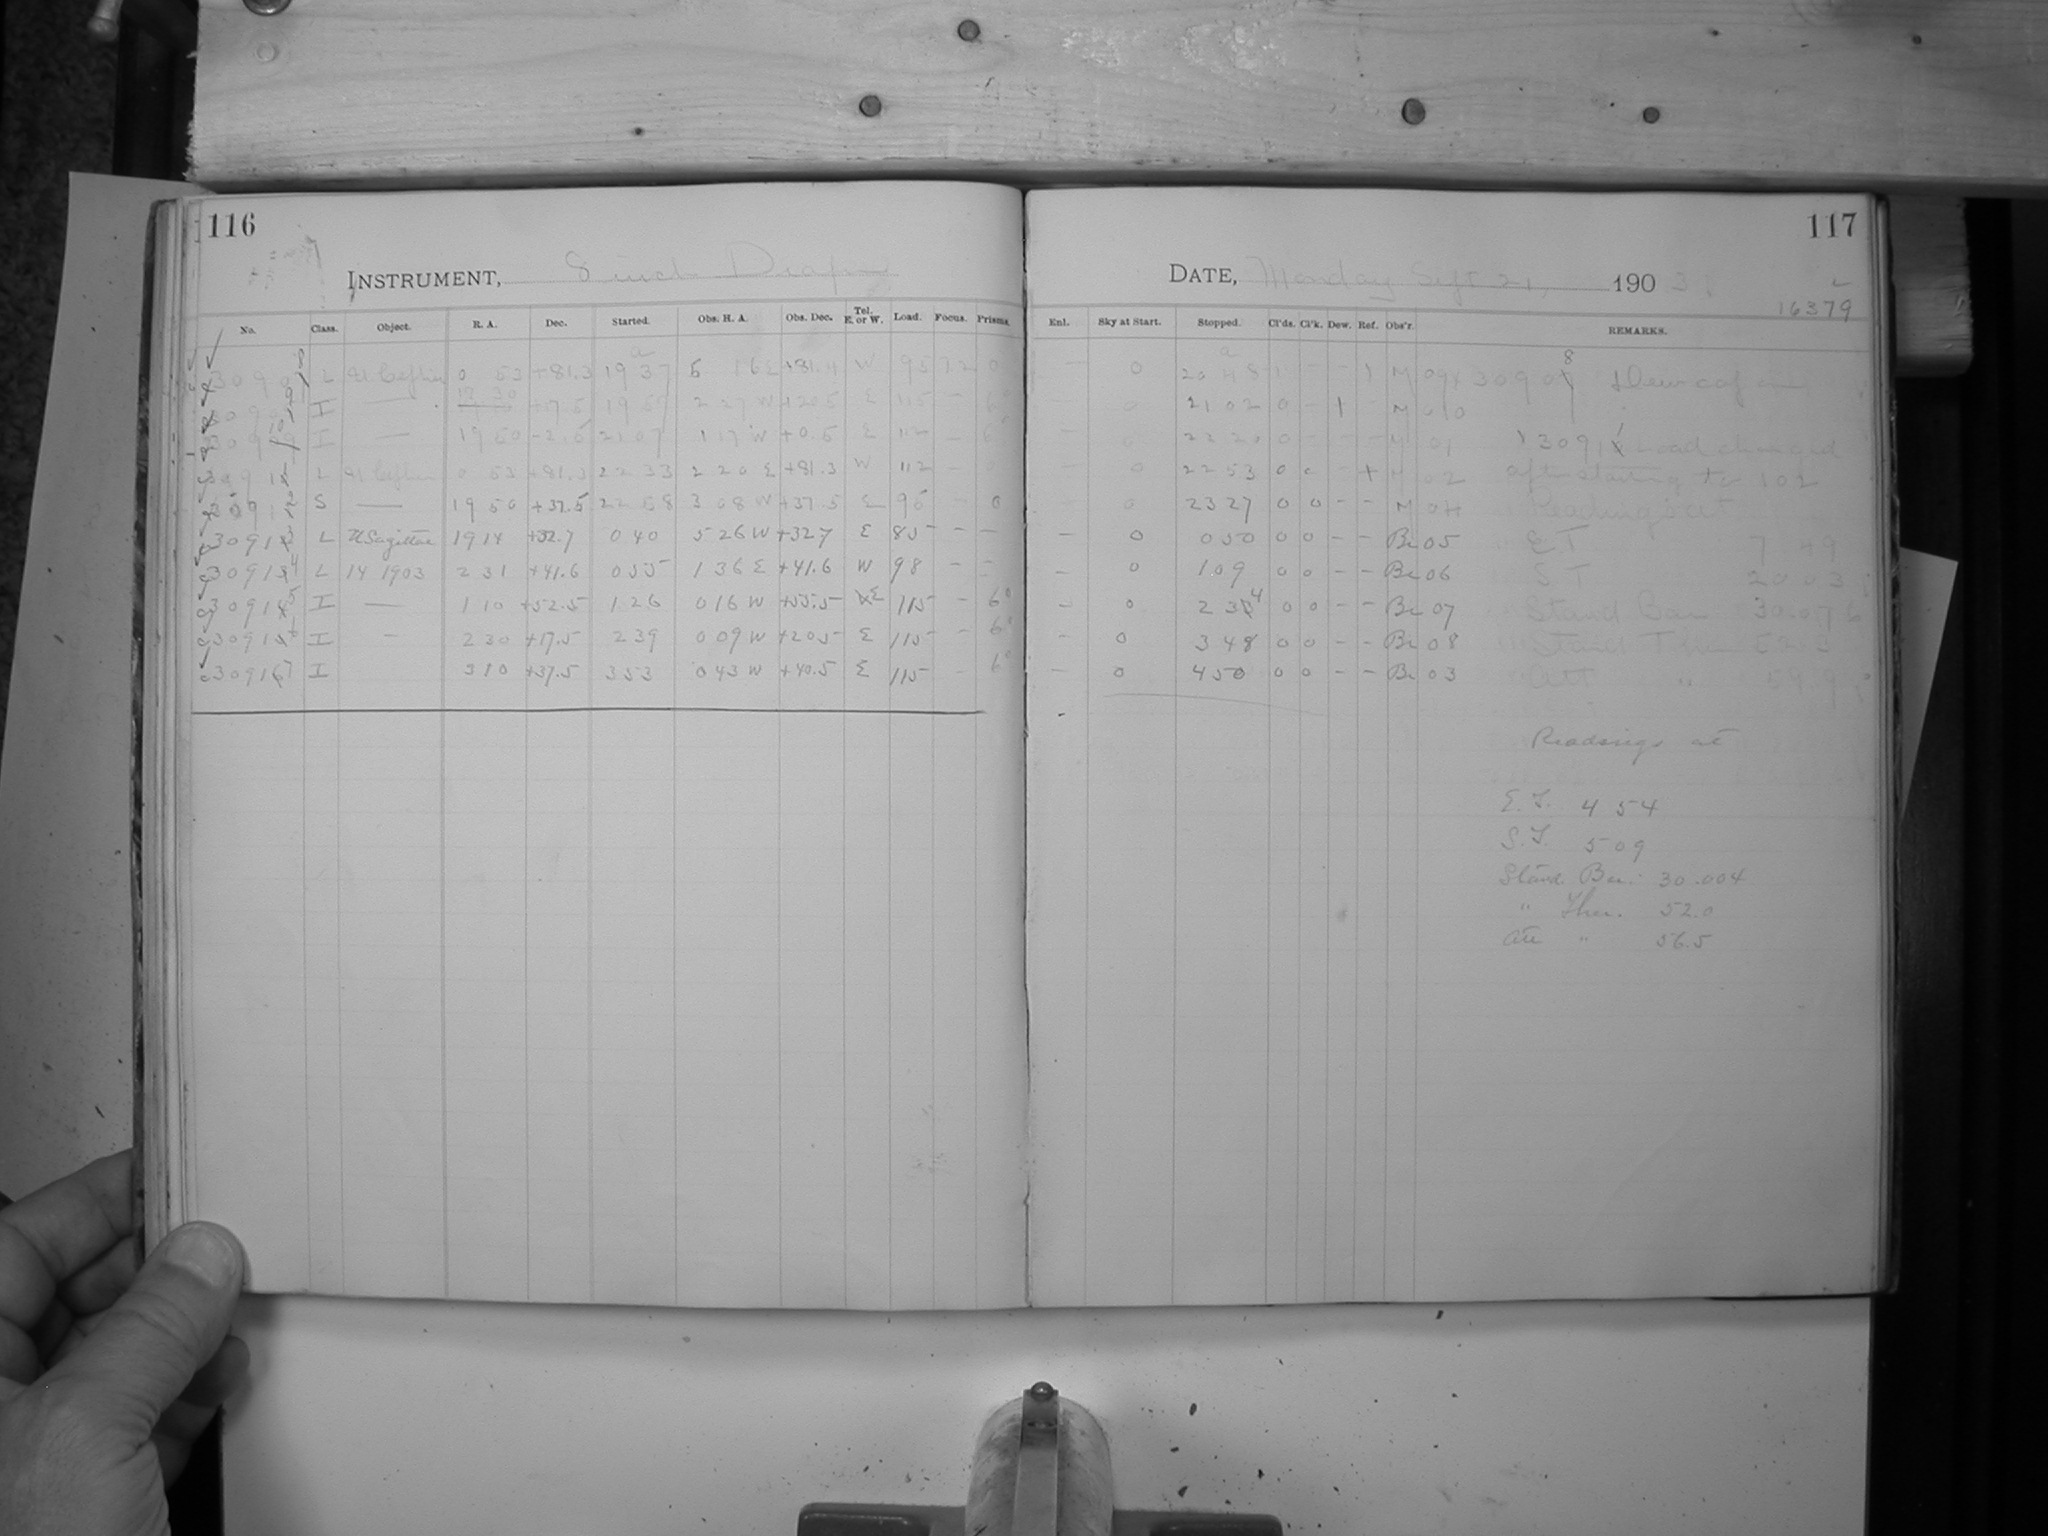 116
INSTRUMENT, 8 inch Draper
No. Class. Object. R. A. Dec. Started. Obs. H. A. Obs. Dec. Tel. E. or W. Load. Focus. Prisms.
L U Cephei 0 53 +81.3 19 37 5 16 E +81.4 W 95 72 0
I — 2 27 W +20.5 E 115 — 6°
I — 19 50 -2.5 21 07 1 17 W +0.5 E 112 — 6°
L U Cephei 0 53 +81.3 22 33 2 20 E +81.3 W 112 — 0
S — 19 50 +37.5 22 58 3 08 W +37.5 E 95 — 0
L U Sagittae 19 14 +32.7 0 40 5 26 W +32.7 E 85 — —
30914 L 14 1903 2 31 +41.6 0 55 1 36 E +41.6 W 98 — —
30915 I — 1 10 +52.5 1 26 0 16 W +55.5 E 115 — 6°
30916 I — 2 30 +17.5 2 39 0 09 W +20.5 E 115 — 6°
30917 I 3 10 +37.5 3 53 0 43 W +40.5 E 115 — 6°
117
DATE, Monday Sept 21, 1903.
16379
Enl. Sky at Start. Stopped. Cl'ds. Cl'k. Dew. Ref. Obs'r. REMARKS.
— 0 20 48 1 — — 1 M 09 30908 Dew cap
— 0 21 02 0 — 1 — M 010
— 0 22 20 0 — — — M 01 30911 Load changed
— 0 22 53 0 0 + M 02 after starting to 102
0 23 27 0 0 M 04 Readings at
— 0 0 50 0 0 — — Br 05 E T 7 49
— 0 1 09 0 0 — — Br 06 S T 20 03
— 0 2 34 0 0 — — Br 07 Stand Bar 30.076
— 0 3 48 0 0 — — Br 08 Stand Ther 62.3
— 0 4 50 0 0 — — Br 03 Att " 59.9
Readings at
E. T. 4 54
S. T. 5 09
Stand. Bar. 30.004
" Ther. 52.0
Att " 56.5